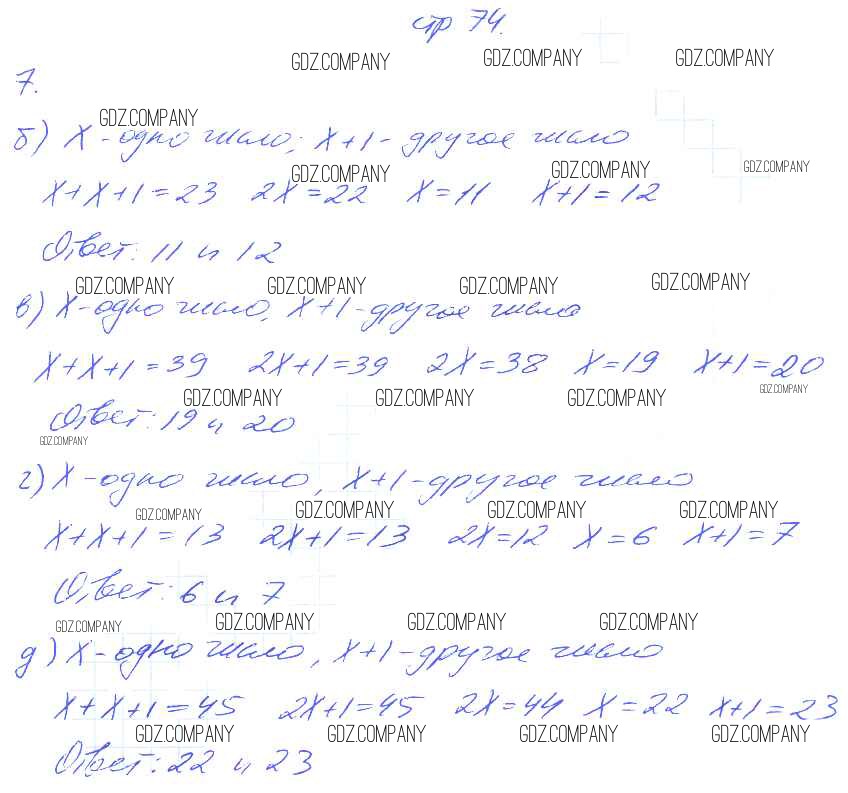 стр 74.
GDZ.COMPANY GDZ.COMPANY GDZ.COMPANY
7.
GDZ.COMPANY
б) X - одно число; X+1 - другое число
GDZ.COMPANY GDZ.COMPANY GDZ.COMPANY
X+X+1=23 2X=22 X=11 X+1=12
Ответ: 11 и 12
GDZ.COMPANY GDZ.COMPANY GDZ.COMPANY GDZ.COMPANY
в) X - одно число, X+1 - другое число
X+X+1=39 2X+1=39 2X=38 X=19 X+1=20
GDZ.COMPANY GDZ.COMPANY GDZ.COMPANY GDZ.COMPANY
Ответ: 19 и 20
GDZ.COMPANY
г) X - одно число, X+1 - другое число
GDZ.COMPANY GDZ.COMPANY GDZ.COMPANY GDZ.COMPANY
X+X+1=13 2X+1=13 2X=12 X=6 X+1=7
Ответ: 6 и 7
GDZ.COMPANY GDZ.COMPANY GDZ.COMPANY GDZ.COMPANY
д) X - одно число, X+1 - другое число
X+X+1=45 2X+1=45 2X=44 X=22 X+1=23
GDZ.COMPANY GDZ.COMPANY GDZ.COMPANY GDZ.COMPANY
Ответ: 22 и 23